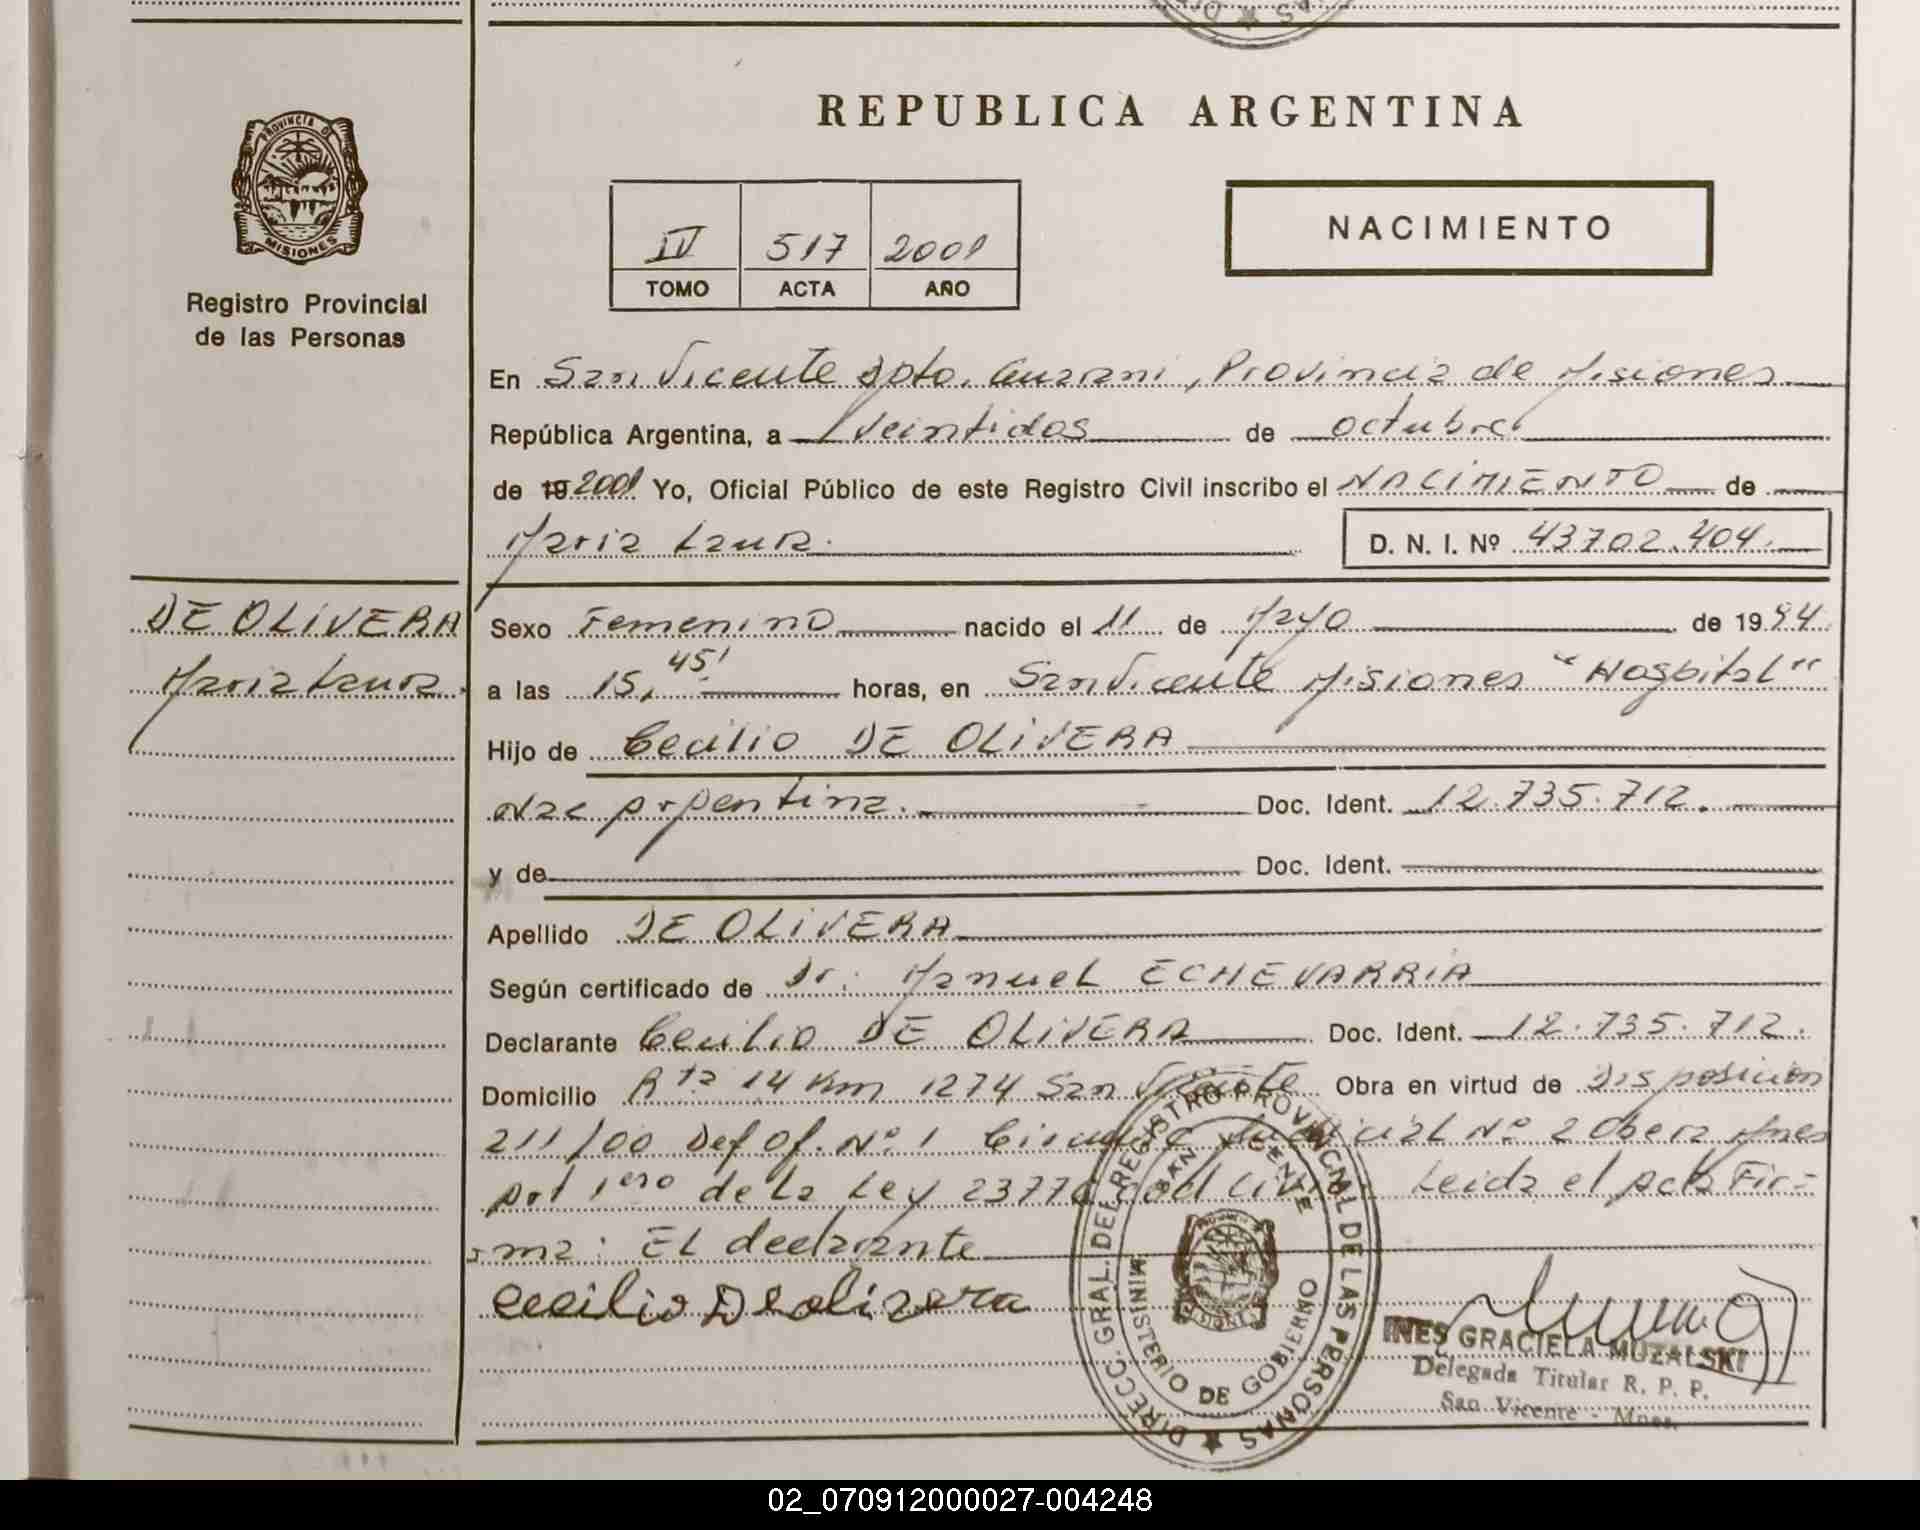 REPUBLICA ARGENTINA
PROVINCIA DE
MISIONES
Registro Provincial
de las Personas
IV 517 2001
TOMO ACTA AÑO
NACIMIENTO
En San Vicente Dpto. Guarani, Provincia de Misiones
República Argentina, a Veintidos de octubre
de 19 2001 Yo, Oficial Público de este Registro Civil inscribo el NACIMIENTO de
Maria Laura. D. N. I. Nº 43702.404.
DE OLIVERA
Maria Laura.
Sexo Femenino nacido el 11 de Mayo de 1994
a las 15,45' horas, en San Vicente Misiones "Hospital"
Hijo de Cecilio DE OLIVERA
Nac Argentina. Doc. Ident. 12.735.712.
y de Doc. Ident.
Apellido DE OLIVERA
Según certificado de Dr. Manuel ECHEVARRIA
Declarante Cecilio DE OLIVERA Doc. Ident. 12.735.712.
Domicilio Rta 14 Km 1274 San Vicente Obra en virtud de Disposicion
211/00 Def Of. Nº 1 Judicial Nº 2 Obera Mnes
Art 1ero de la Ley Leida el acta Fir=
=ma: El declarante
Cecilio De olivera
DIRECC. GRAL. DEL REGISTRO PROVINCIAL DE LAS PERSONAS
SAN VICENTE
MINISTERIO DE GOBIERNO
INES GRACIELA MUZALSKI
Delegada Titular R. P. P.
San Vicente - Mnes.
02_070912000027-004248